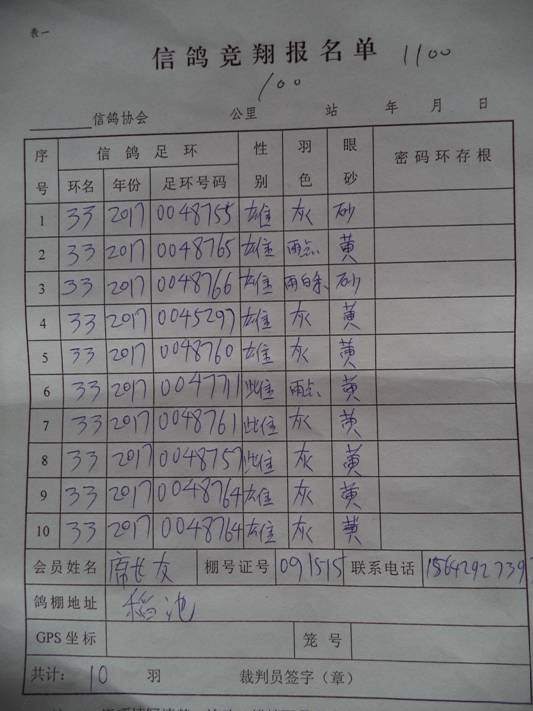 表一
信鸽竞翔报名单 1100
100
信鸽协会 公里 站 年 月 日
序号 信鸽足环 性别 羽色 眼砂 密码环存根
环名 年份 足环号码
1 33 2017 0048755 雄 灰 砂
2 33 2017 0048765 雄 雨点 黄
3 33 2017 0048766 雄 雨白条 砂
4 33 2017 0045297 雄 灰 黄
5 33 2017 0048760 雄 灰 黄
6 33 2017 004771 雌 雨点 黄
7 33 2017 0048761 雌 灰 黄
8 33 2017 0048757 雌 灰 黄
9 33 2017 0048764 雄 灰 黄
10 33 2017 0048764 雄 灰 黄
会员姓名 席长友 棚号证号 091515 联系电话 1564292739
鸽棚地址 稻池
GPS坐标 笼号
共计: 10 羽 裁判员签字(章)